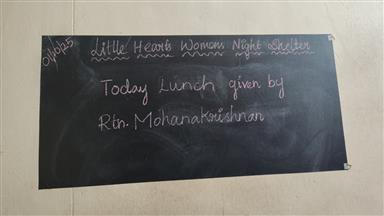 01/10/25
Little Hearts Womens Night Shelter
Today Lunch given by
Rtn. Mohanakrishnan